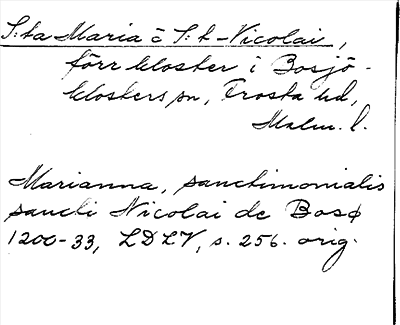 S:ta Maria o S:t Nicolai,
förr kloster i Bosjö-
klosters sn, Frosta hd,
Malm. l.
Marianna, sanctimonialis
sancti Nicolai de Bosø
1200-33, LDLV, s. 256. orig.